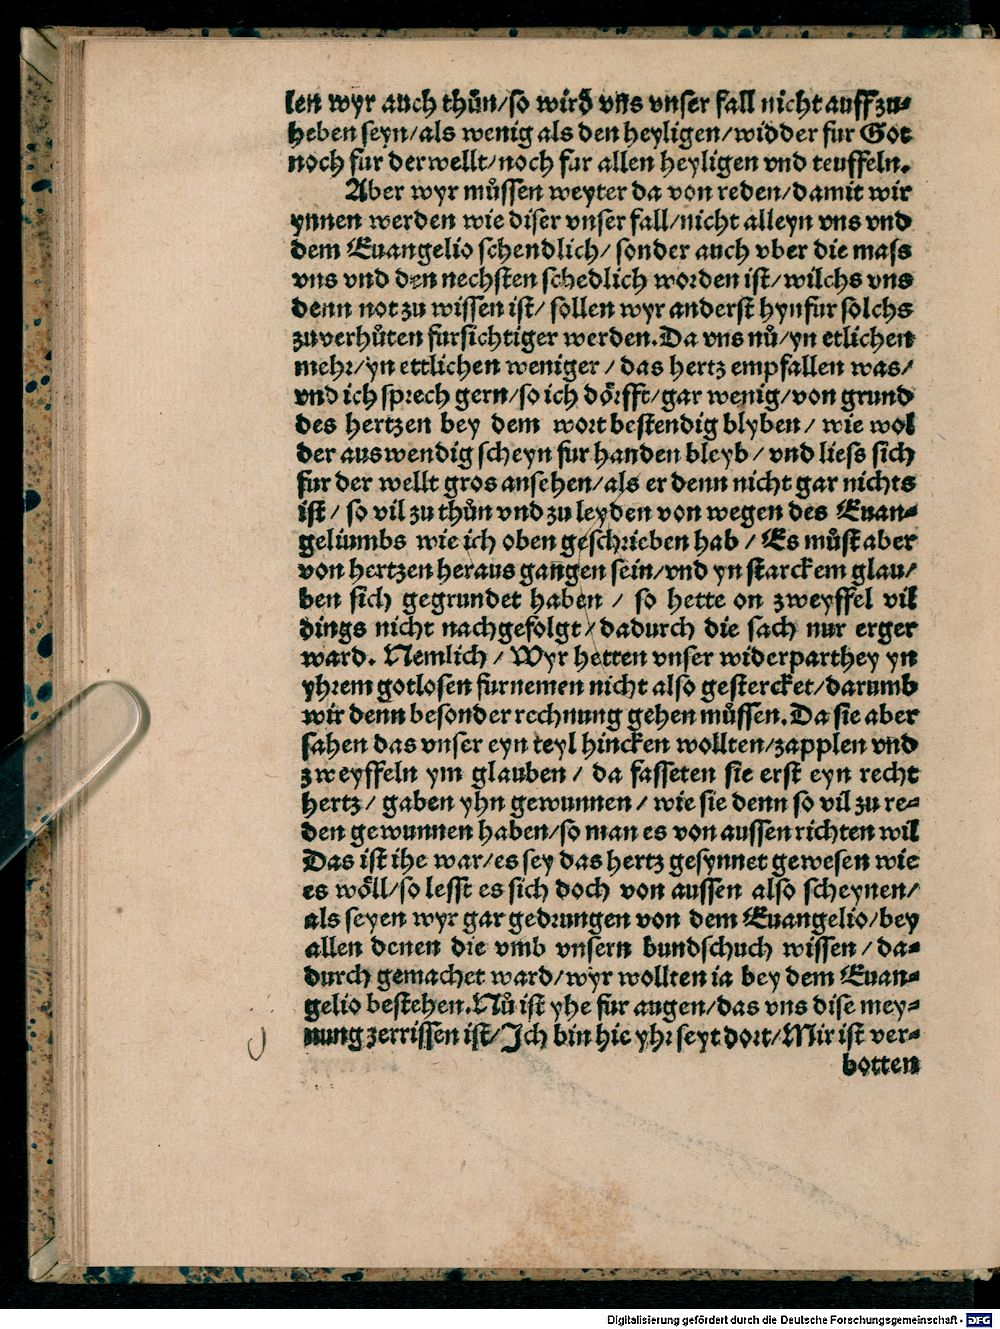 len wyr auch thůn/so wird vns vnser fall nicht auffzu-
heben seyn/als wenig als den heyligen/widder fur Got
noch fur der wellt/noch fur allen heyligen vnd teuffeln.
Aber wyr můssen weyter da von reden/damit wir
ynnen werden wie diser vnser fall/nicht alleyn vns vnd
dem Euangelio schendlich/ sonder auch vber die mass
vns vnd den nechsten schedlich worden ist/wilchs vns
denn not zu wissen ist/ sollen wyr anderst hynfur solchs
zuverhůten fursichtiger werden. Da vns nů/yn etlichen
mehr/yn ettlichen weniger / das hertz empfallen was/
vnd ich sprech gern/so ich dőrfft/gar wenig/von grund
des hertzen bey dem wort bestendig blyben/ wie wol
der auswendig scheyn fur handen bleyb/ vnd liess sich
fur der wellt gros ansehen/als er denn nicht gar nichts
ist/ so vil zu thůn vnd zu leyden von wegen des Euan-
geliumbs wie ich oben geschrieben hab / Es můst aber
von hertzen heraus gangen sein/vnd yn starckem glau/
ben sich gegrundet haben / so hette on zweyffel vil
dings nicht nachgefolgt/dadurch die sach nur erger
ward. Nemlich / Wyr hetten vnser widerparthey yn
yhrem gotlosen furnemen nicht also gestercket/darumb
wir denn besonder rechnung gehen můssen. Da sie aber
sahen das vnser eyn teyl hincken wollten/zapplen vnd
zweyffeln ym glauben / da fasseten sie erst eyn recht
hertz/ gaben yhn gewunnen / wie sie denn so vil zu re-
den gewunnen haben/so man es von aussen richten wil
Das ist ihe war/es sey das hertz gesynnet gewesen wie
es wőll/so lesst es sich doch von aussen also scheynen/
als seyen wyr gar gedrungen von dem Euangelio/bey
allen denen die vmb vnsern bundschuch wissen / da-
durch gemachet ward/wyr wollten ia bey dem Euan-
gelio bestehen. Nů ist yhe fur augen/das vns dise mey-
nung zerrissen ist/ Ich bin hie yhr seyt dort/Mir ist ver-
botten
Digitalisierung gefördert durch die Deutsche Forschungsgemeinschaft - DFG